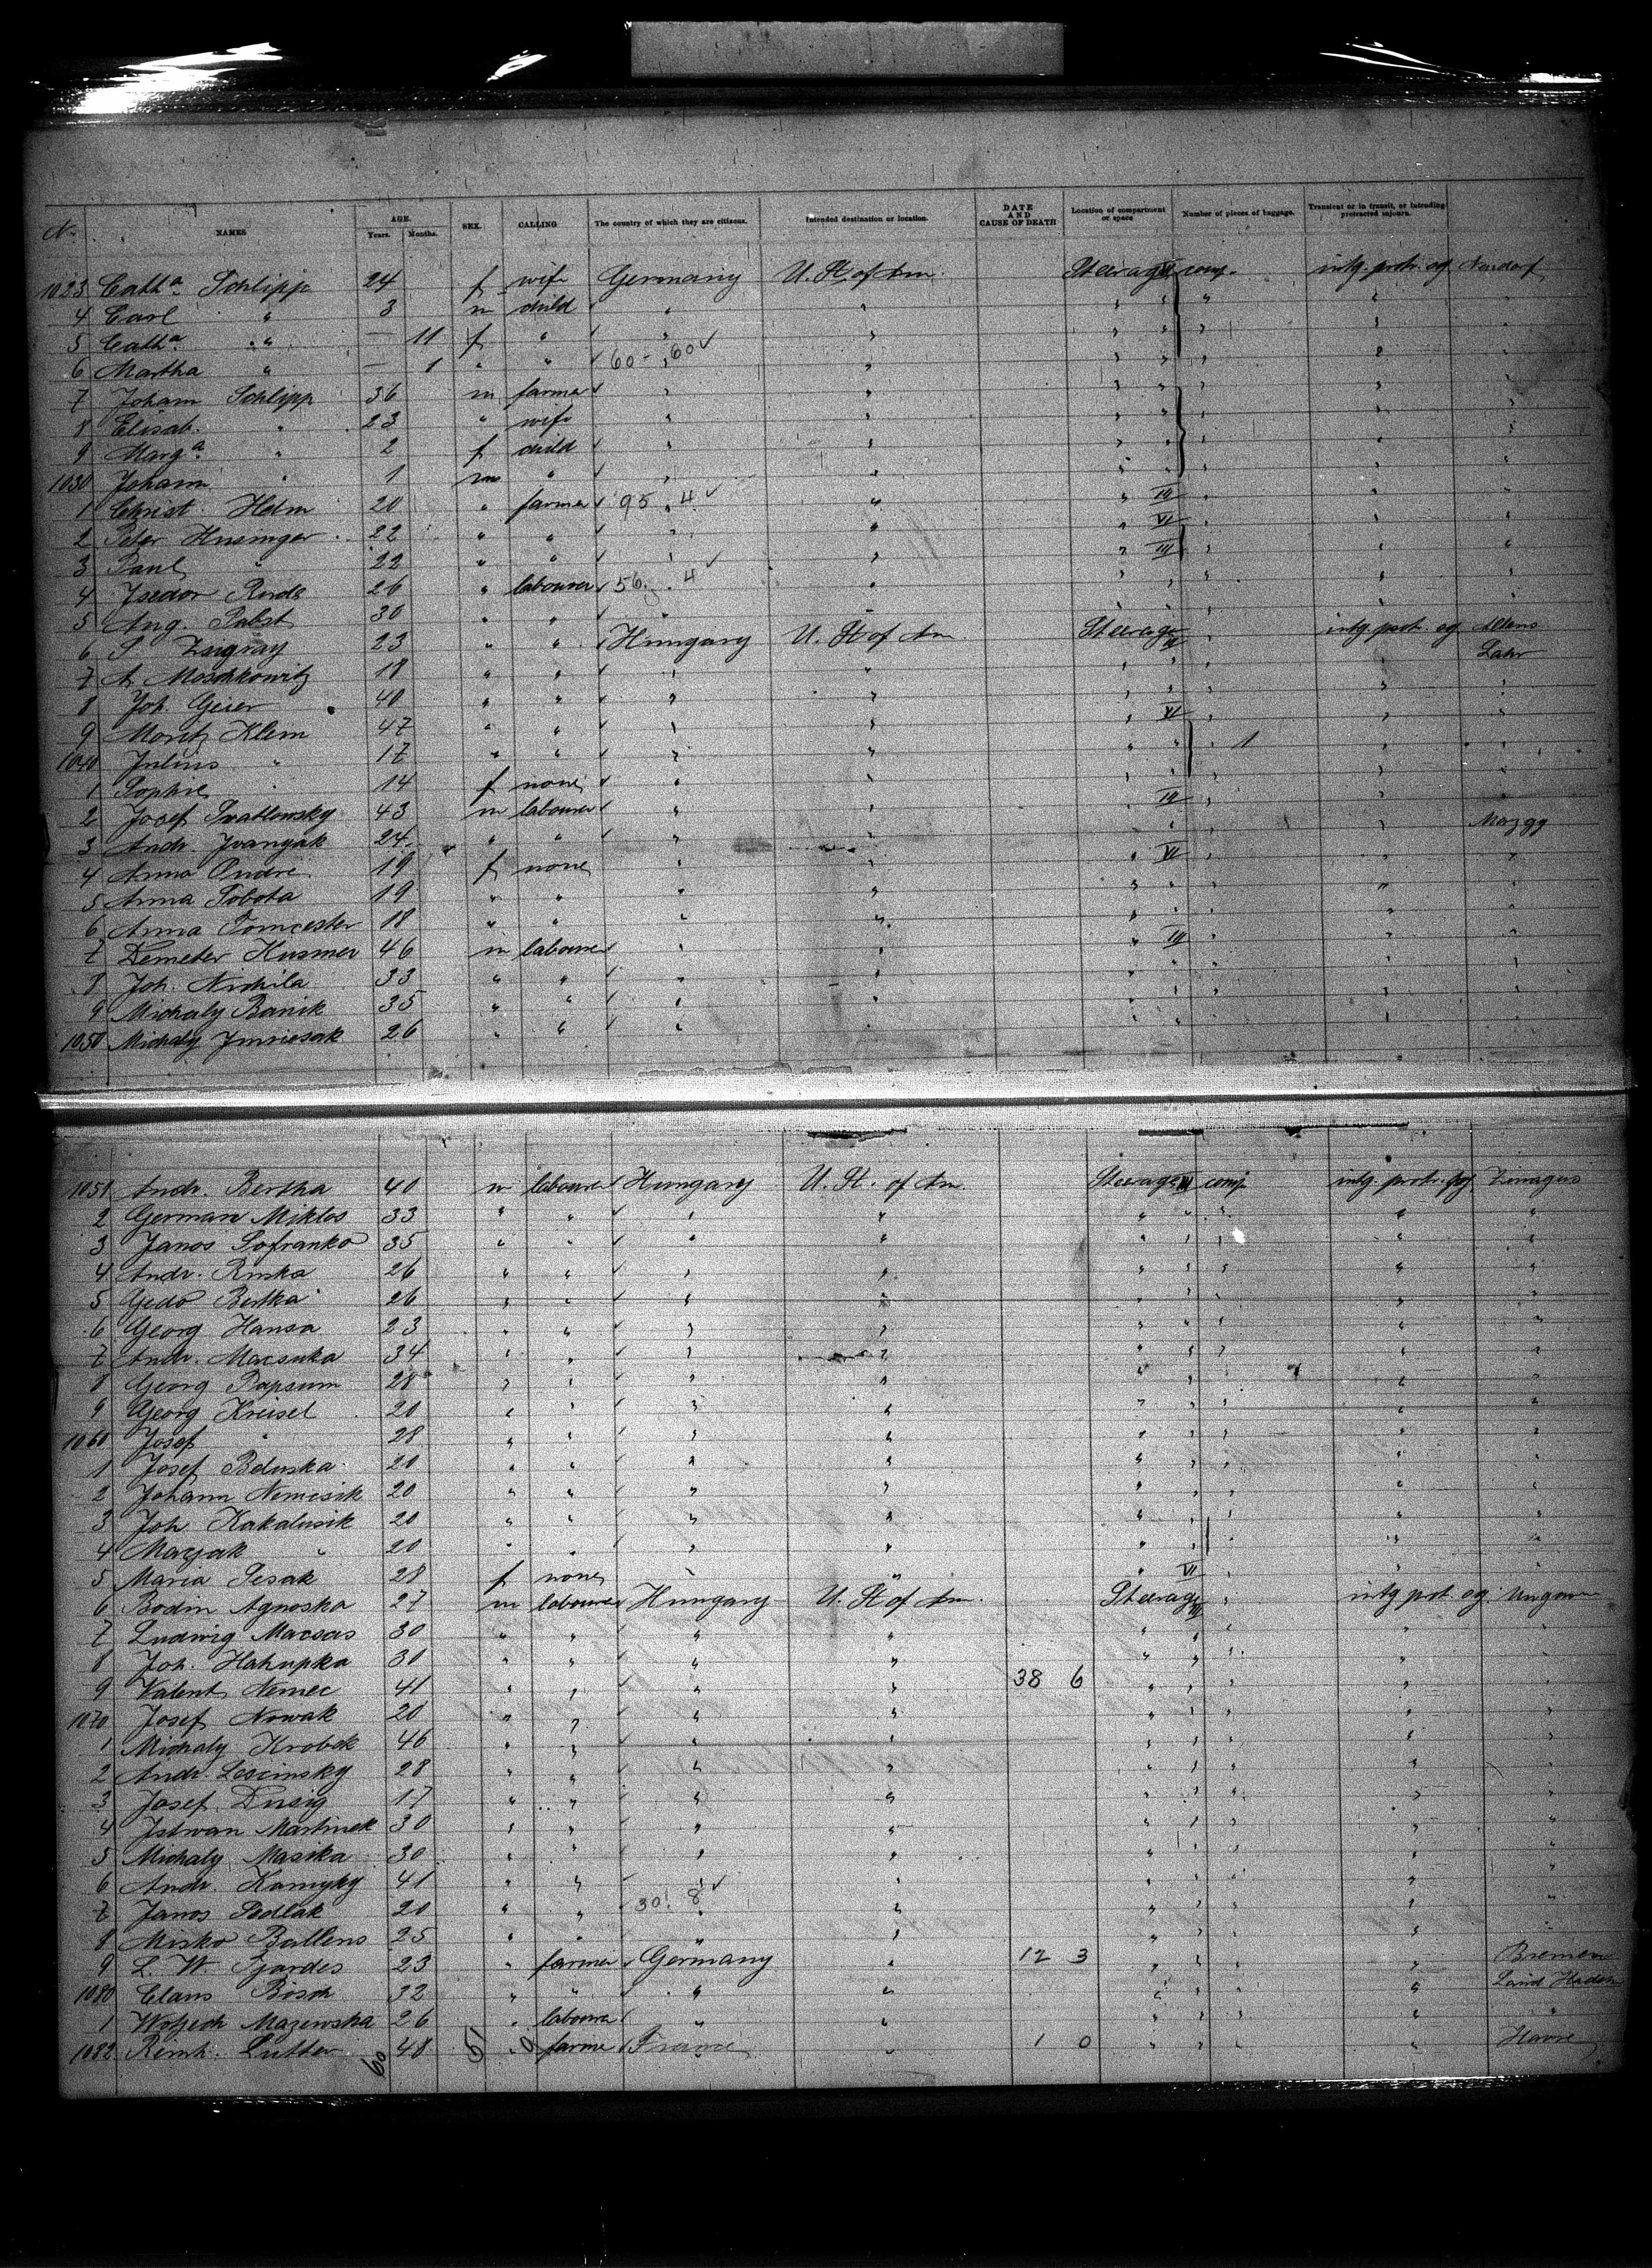 No. NAMES AGE. Years. Months. SEX. CALLING The country of which they are citizens. Intended destination or location. DATE AND CAUSE OF DEATH Location of compartment or space Number of pieces of baggage. Transient or in transit, or intending protracted sojourn.
1023 Cath.a Schlipp 24 f wife Germany U. St. of Am. Steerage VI comp. intg. protr. og. Neudorf
4 Carl " 3 m child " "
5 Cath.a " — 11 f " "
6 Martha " — 1 " " 60 - 60 ✓
7 Johann Schlipp 36 m farmer " "
8 Elisab. " 23 " wife " "
9 Marg.a " 2 f child " "
1030 Johann " 1 m " " "
1 Christ. Helm 20 " farmer 95 4 ✓ " III
2 Peter Husinger 22 " " " " VI
3 Paul " 22 " " " " III
4 Isedor Rinde 26 " labourer 56 4 ✓
5 Aug. Pabst 30 " " " "
6 S 23 " " Hungary U. St of Am Steerage III " intg. protr. og.
7 A. Moschkowitz 18 " " " " Lahr
8 Joh. Geier 40 " " " "
9 Moritz Klein 47 " " " " VI
1040 Julius " 17 " " " " 1
1 Sophie " 14 f none " "
2 Josef Swatlowsky 43 m labourer " " III
3 Andr. Ivanyak 24 " " " "
4 Anna Ondre 19 f none " " VI
5 Anna Sobota 19 " " " "
6 Anna Tomcester 18 " " " "
7 Demeter Kusmer 46 m labourer " " III
8 Joh. Nichila 33 " " " "
9 Michaly Banik 35 " " " "
1050 Michaly Imriesak 26 " " " "
1051 Andr. Bertha 40 m labourer Hungary U. St. of Am. Steerage III comp intg. protr. og.
2 German Miklos 33 " " " "
3 Janos Sofranko 35 " " " "
4 Andr. Rinka 26 " " " "
5 Gedo Betka 26 " " " "
6 Georg Hansa 23 " " " "
7 Andr. Macsuka 34 " " " "
8 Georg Papsum 28 " " " "
9 Georg Kreisel 20 " " " "
1060 Josef " 28 " " " "
1 Josef Beluska 20 " " " "
2 Johann Nemcsik 20 " " " "
3 Joh Kakalusik 20 " " " "
4 Maryak " 20 " " " "
5 Maria Pesak 28 f none " " VI
6 Bodin Agnoska 27 m labourer Hungary U. St of Am. Steerage III " intg prt. og.
7 Ludwig Macsas 30 " " " "
8 Joh. Hahupka 30 " " " "
9 Valent Nemec 41 " " " " 38 6
1070 Josef Nowak 20 " " " "
1 Michaly Krobek 46 " " " "
2 Andr. Lescinsky 28 " " " "
3 Josef Dusig 17 " " " "
4 Istwan Martinek 30 " " " "
5 Michaly Masika 30 " " " "
6 Andr. Kamyky 41 " " " "
7 Janos Sedlak 20 " " 30 8 ✓ "
8 Misko Ballens 25 " " " "
9 L. W. Tjardes 23 " farmer Germany " 12 3 Bremen
1080 Claus Bosch 32 " " " " Land Hadeln
1 Wotjech Mazewska 26 " labourer " "
1082 Reinh. Lutter 48 " farmer France " 1 0 Havre
60 51 9